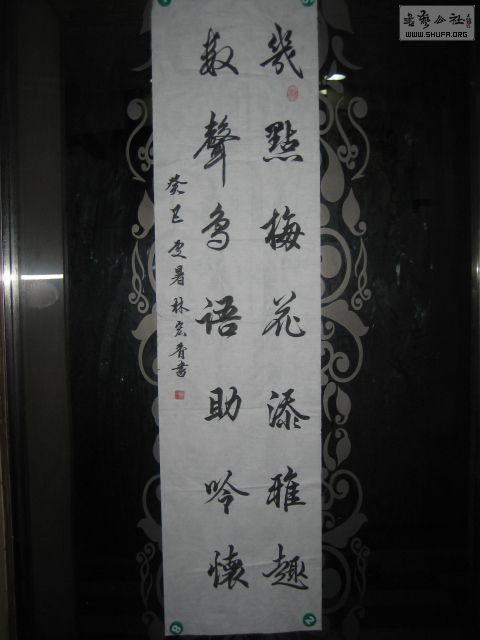 幾點梅花添雅趣
數聲鳥語助吟懷
癸巳處暑林宏青書
書藝公社
WWW.SHUFA.ORG